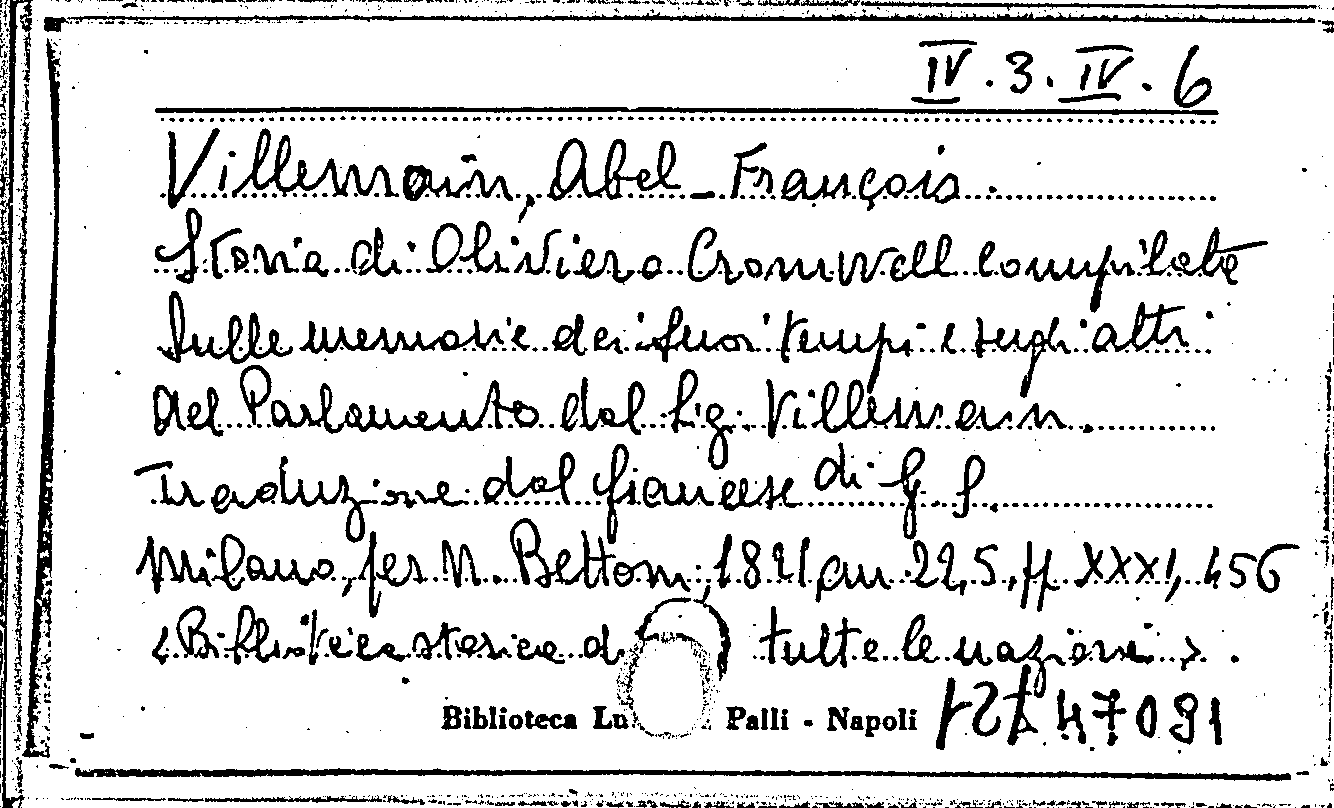 IV.3.IV.6
Villemain, Abel-François.
Storia di Oliviero Cromwell compilata
sulle memorie dei suoi tempi e sugli atti
del Parlamento dal Sig. Villemain.
Traduzione dal francese di G. S.
Milano, per N. Bettoni, 1821, cm. 22,5, pp. XXXI, 456
<Biblioteca storica d tutte le nazioni>.
Biblioteca Lu Palli - Napoli 47091